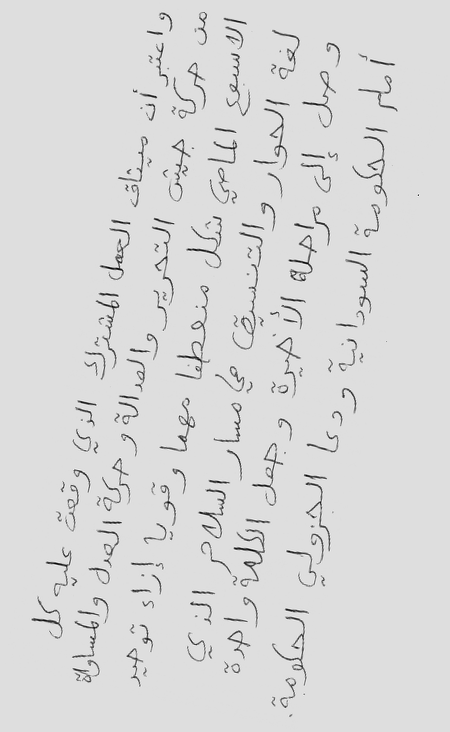 واعتبر أن ميثاق العمل المشترك الذي وقعت عليه كل
من حركة جيش التحرير والعدالة وحركة العدل والمساواة
الاسبوع الماضي شكل منعطفا مهما وقويا إزاء توحيد
لغة الحوار والتنسيق في مسار السلام الذي
وصل إلى مراحله الأخيرة وجعل الكلمة واحدة
أمام الحكومة السودانية ودعا الجزولي الحكومة.